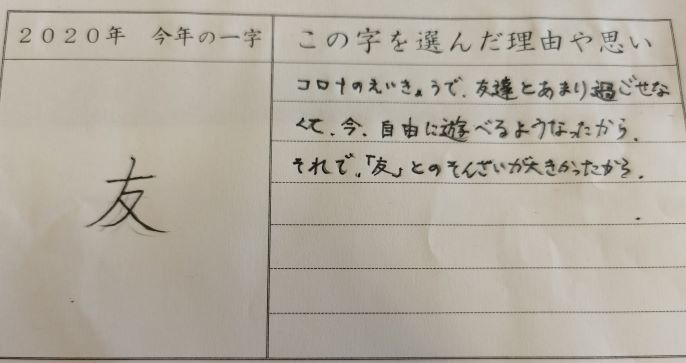 2020年 今年の一字
この字を選んだ理由や思い
友
コロナのえいきょうで、友達とあまり過ごせな
くて、今、自由に遊べるようなったから、
それで、「友」とのそんざいが大きかったから。